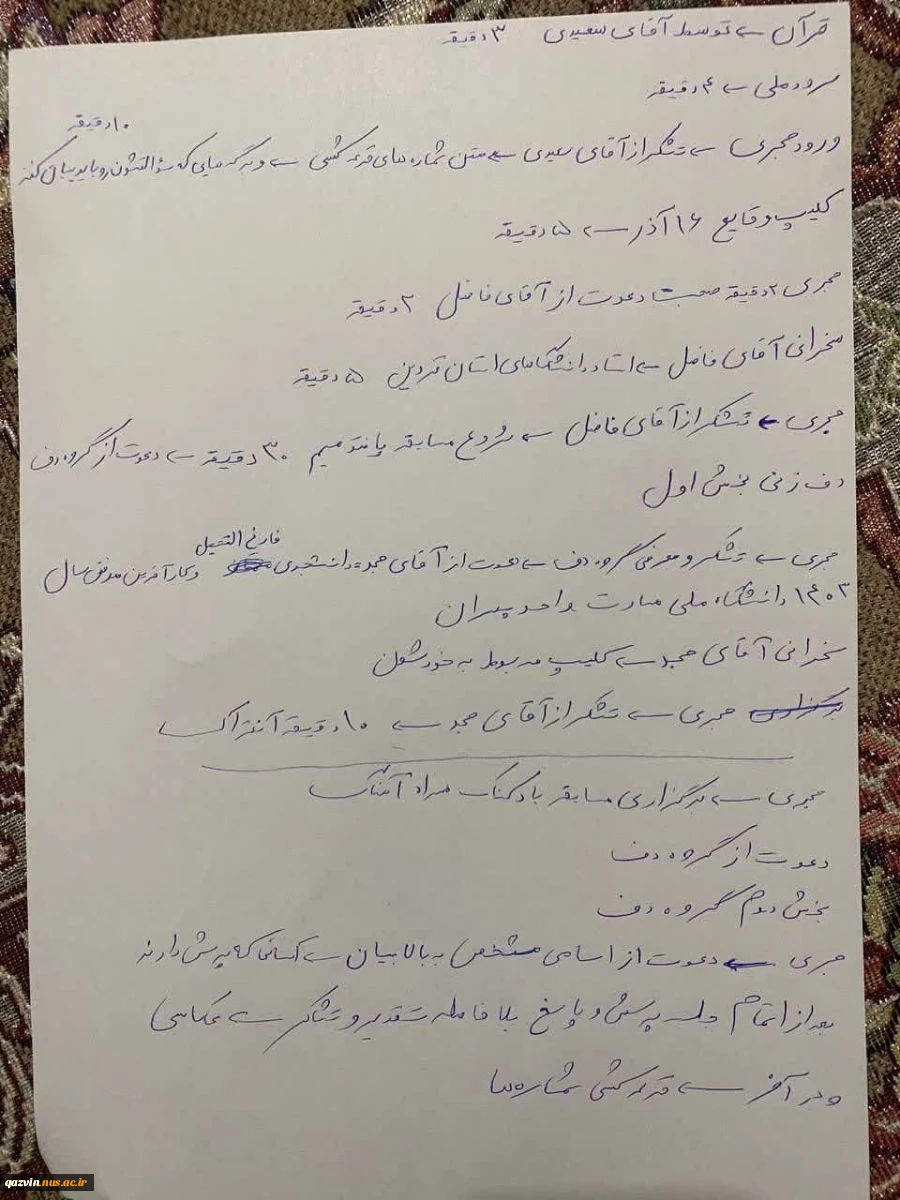 قرآن ← توسط آقای سعیدی ۳ دقیقه
سرود ملی ← ۴ دقیقه
۱۰ دقیقه
ورود مجری ← تشکر از آقای سعیدی ← متن شماره های قرعه کشی ← و برگه هایی که سؤالاتشون رو باید بیان کنند
کلیپ وقایع ۱۶ آذر ← ۵ دقیقه
مجری ۲ دقیقه صحبت دعوت از آقای فاضل ۲ دقیقه
سخرانی آقای فاضل ← استاد دانشگاهای استان قزوین ۵ دقیقه
مجری ← تشکر از آقای فاضل ← شروع مسابقه پانتومیم ۳۰ دقیقه ← دعوت از گروه دف
دف زنی بخش اول
فارغ التحصیل
مجری ← تشکر و معرفی گروه دف ← دعوت از آقای دانشجوی و کارآفرین موفق سال
۱۴۰۳ دانشگاه ملی مهارت واحد پسران
سخرانی آقای ← کلیپ مربوط به خودشون
برگزاری مجری ← تشکر از آقای ← ۱۰ دقیقه آنتراک
مجری ← برگزاری مسابقه بادکنک همراه آهنگ
دعوت از گروه دف
بخش دوم گروه دف
مجری ← دعوت از اسامی مشخص به بالا بیان ← کسانی که پرسش دارند
بعد از اتمام جلسه پرسش و پاسخ بلافاصله تقدیر و تشکر ← عکاسی
و در آخر ← قرعه کشی شماره ها
qazvin.nus.ac.ir